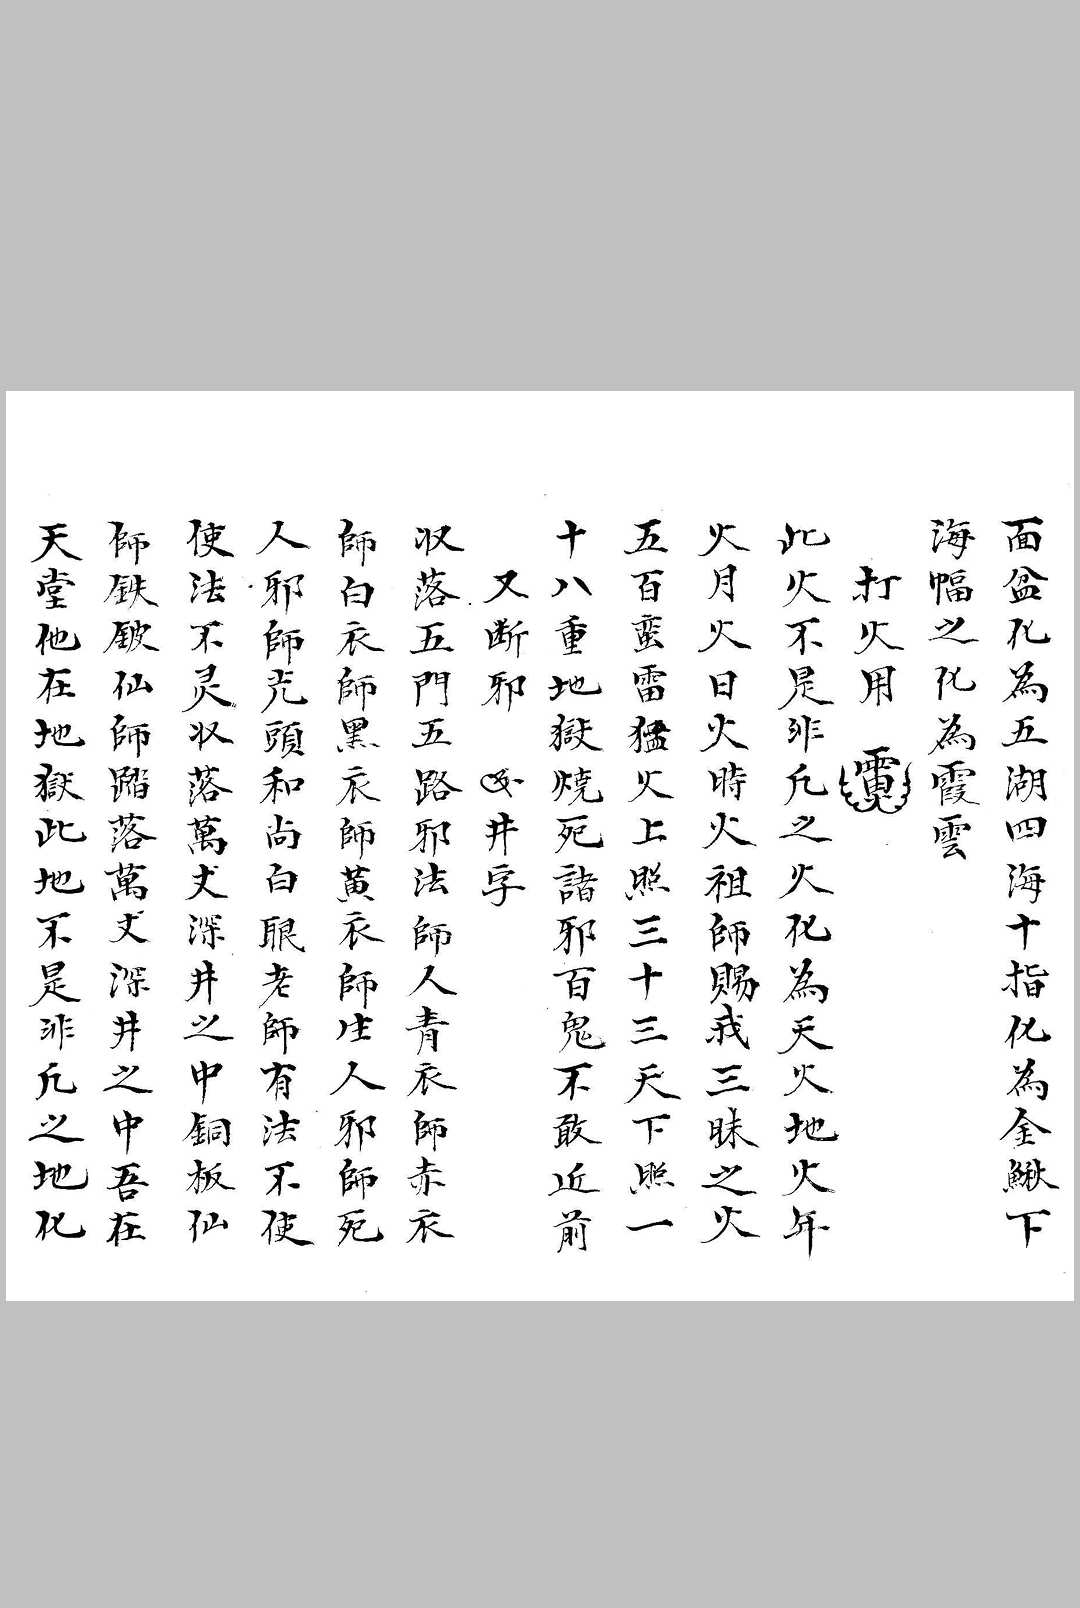 面盆化為五湖四海十指化為金鰍下
海幅之化為霞雲
打火用
此火不是非凡之火化為天火地火年
火月火日火時火祖師賜我三昧之火
五百蛮雷猛火上照三十三天下照一
十八重地獄燒死諸邪百鬼不敢近前
又断邪 井字
収落五門五路邪法師人青衣師赤衣
師白衣師黑衣師黄衣師生人邪師死
人邪師光頭和尚白眼老師有法不使
使法不灵収落萬丈深井之中銅板仙
師鉄鈹仙師踏落萬丈深井之中吾在
天堂他在地獄此地不是非凡之地化